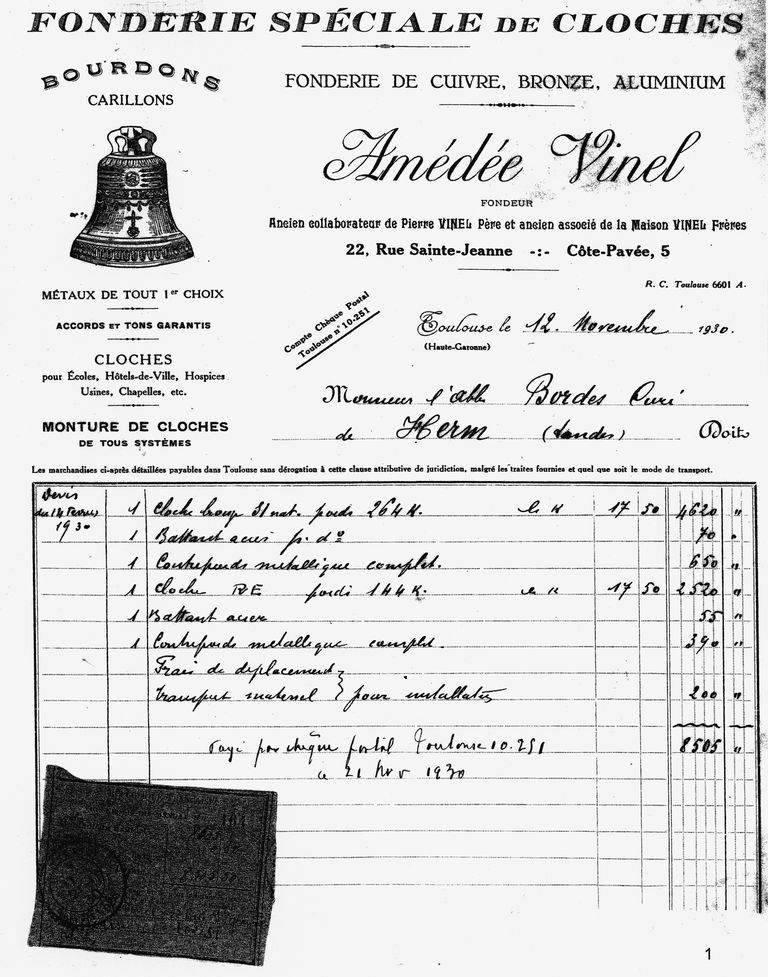 FONDERIE SPÉCIALE DE CLOCHES
BOURDONS
CARILLONS
FONDERIE DE CUIVRE, BRONZE, ALUMINIUM
Amédée Vinel
FONDEUR
Ancien collaborateur de Pierre VINEL Père et ancien associé de la Maison VINEL Frères
22, Rue Sainte-Jeanne -:- Côte-Pavée, 5
R. C. Toulouse 6601 A.
MÉTAUX DE TOUT 1er CHOIX
ACCORDS ET TONS GARANTIS
CLOCHES
pour Écoles, Hôtels-de-Ville, Hospices
Usines, Chapelles, etc.
MONTURE DE CLOCHES
DE TOUS SYSTÈMES
Compte Chèque Postal
Toulouse n° 10-251
Toulouse le 12 Novembre 1930.
(Haute-Garonne)
Monsieur l'abbé Bordes Curé
de Herm (Landes) Doit
Les marchandises ci-après détaillées payables dans Toulouse sans dérogation à cette clause attributive de juridiction, malgré les traites fournies et quel que soit le mode de transport.
Devis
du 14 Février
1930
1 Cloche bronze nat. poids 264 K. le K 17 50 4620 "
1 Battant acier p. do 70 "
1 Contrepoids metallique complet. 650 "
1 Cloche RE poids 144 K. le K 17 50 2520 "
1 Battant acier 55 "
1 Contrepoids metallique complet. 390 "
Frais de deplacement
transport materiel } pour installation 200 "
Payé par chèque postal Toulouse 10.251 8505 "
le 21 Nov 1930
1